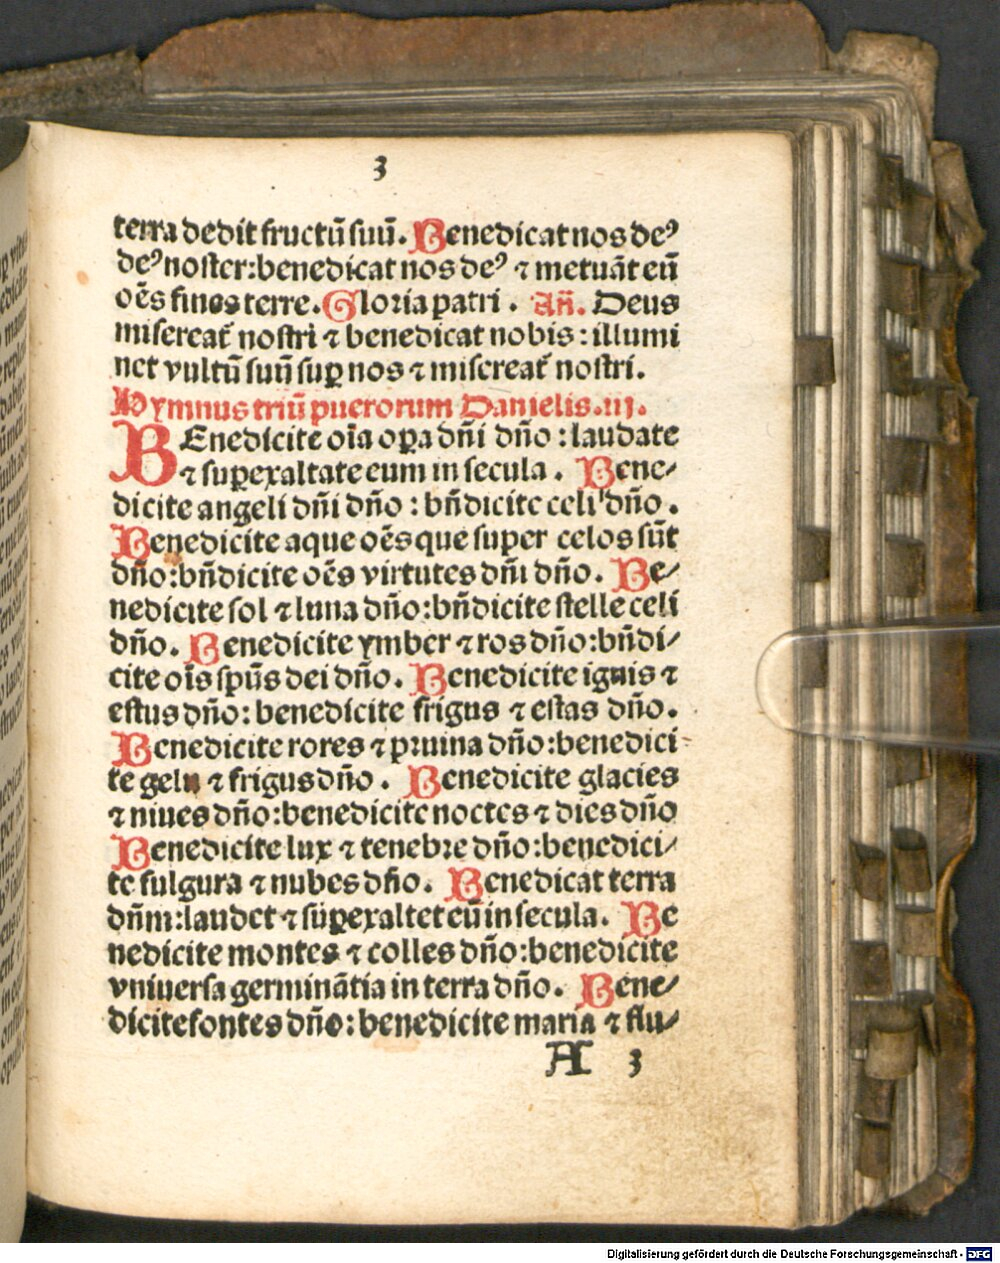 3
terra dedit fructū suū. Benedicat nos deꝰ
deꝰ noster: benedicat nos deꝰ ⁊ metuāt eū
oēs fines terre. Gloria patri. Añ. Deus
misereat̄ nostri ⁊ benedicat nobis: illumi
net vultū suū suꝑ nos ⁊ misereat̄ nostri.
Hymnus triū puerorum Danielis .iij.
BEnedicite oīa oꝑa dñi dño: laudate
⁊ suꝑexaltate eum in secula. Bene⸗
dicite angeli dñi dño: bñdicite celi dño.
Benedicite aque oēs que super celos sūt
dño: bñdicite oēs virtutes dñi dño. Be⸗
nedicite sol ⁊ luna dño: bñdicite stelle celi
dño. Benedicite ymber ⁊ ros dño: bñdi⸗
cite oīs spūs dei dño. Benedicite ignis ⁊
estus dño: benedicite frigus ⁊ estas dño.
Benedicite rores ⁊ pꝛuina dño: benedici⸗
te gelu ⁊ frigus dño. Benedicite glacies
⁊ niues dño: benedicite noctes ⁊ dies dño
Benedicite lux ⁊ tenebꝛe dño: benedici⸗
te fulgura ⁊ nubes dño. Benedicat terra
dñm: laudet ⁊ suꝑexaltet eū in secula. Be
nedicite montes ⁊ colles dño: benedicite
vniuersa germinātia in terra dño. Bene⸗
dicite fontes dño: benedicite maria ⁊ flu⸗
A 3
Digitalisierung gefördert durch die Deutsche Forschungsgemeinschaft - DFG